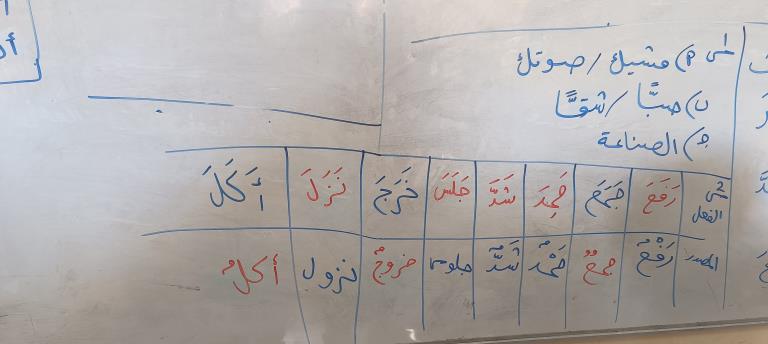 س1 أ) مشيك / صوتك
ب) صبًّا / شقًّا
ج) الصناعة
س2 الفعل رَفَعَ جَمَعَ حَمِدَ شَدَّ جَلَسَ خَرَجَ نَزَلَ أَكَلَ
المصدر رَفْعٌ جمعٌ حَمْدٌ شَدٌّ جلوس خروجٌ نزول أكلٌ